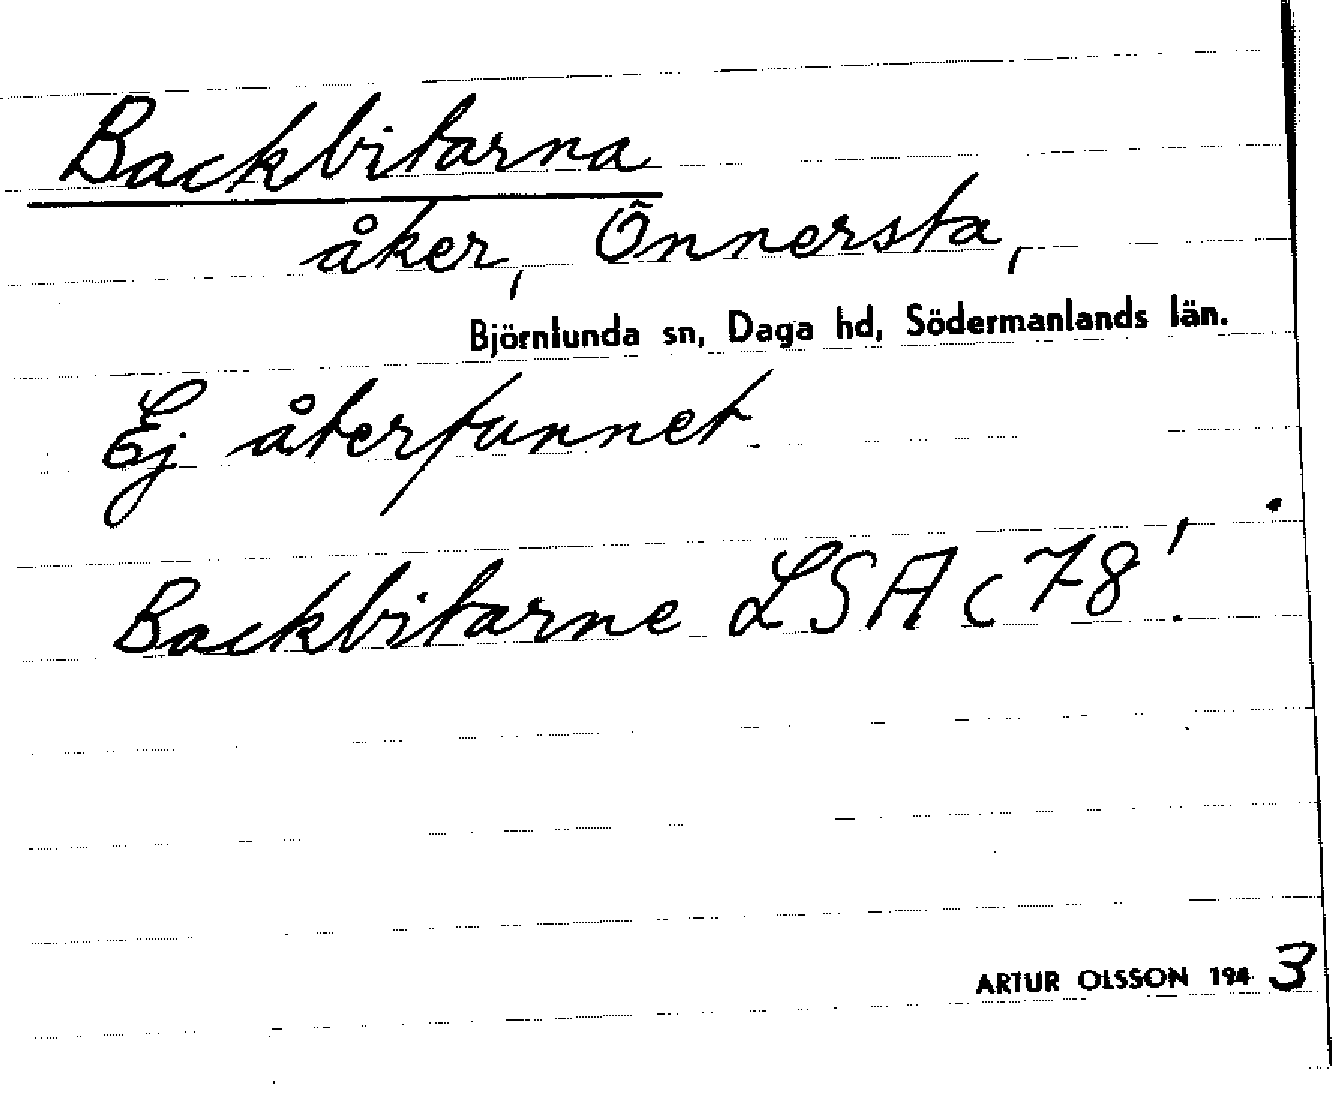 Backbitarna
åker, Önnersta,
Björnlunda sn, Daga hd, Södermanlands län.
Ej återfunnet.
Backbitarne LSA c 78'.
ARTUR OLSSON 1943